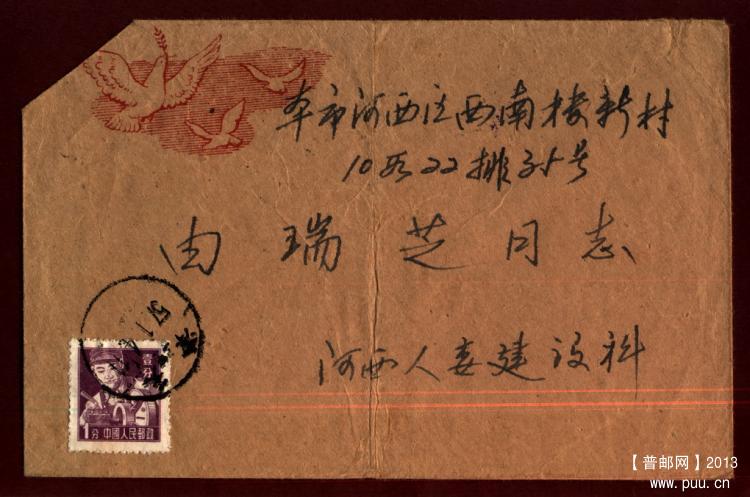 本市河西区西南楼新村
10段22排35号
由瑞芝同志
河西人委建设科
57.1
壹分
1分 中國人民郵政
【普邮网】2013
www.puu.cn